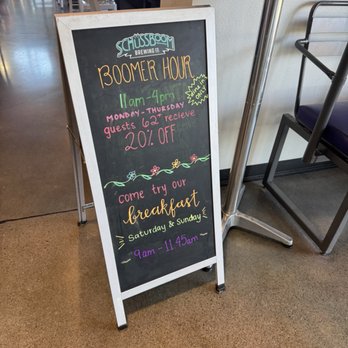 SCHÜSSBOOM
BREWING CO
BOOMER HOUR
11am-4pm
MONDAY - THURSDAY
guests 62+ recieve
20% OFF
come try our
breakfast
Saturday & Sunday
9am - 11:45am